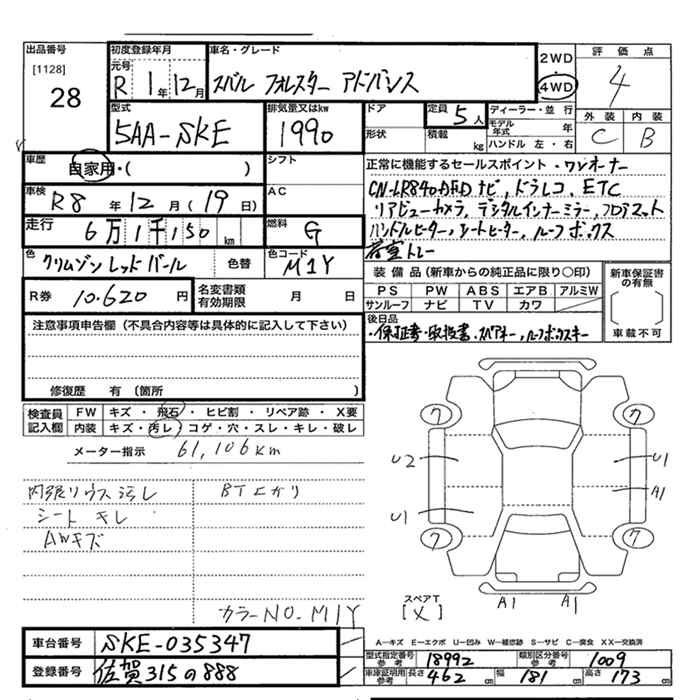 出品番号
[1128]
28
初度登録年月
元号
R 1年 12月
車名・グレード
スバル フォレスター アドバンス
2WD
4WD
評価点
4
外装 内装
C B
型式
5AA-SKE
排気量又はkw
1990
ドア
形状
定員
5人
積載
kg
ディーラー・並行
モデル年式 年
ハンドル 左・右
車歴
自家用・( )
シフト
正常に機能するセールスポイント・ワンオーナー
CN-LR840DFD ナビ、ドラレコ、ETC
リアビューカメラ、デジタルインナーミラー、フロアマット
ハンドルヒーター、シートヒーター、ルーフボックス
荷室トレー
車検
R8年 12月 (19日)
AC
走行
6万1千150km
燃料
G
色
クリムゾンレッドパール
色替
色コード
M1Y
装備品(新車からの純正品に限り○印)
PS PW ABS エアB アルミW
サンルーフ ナビ TV カワ
新車保証書の有無
車載不可
R券
10.620円
名変書類有効期限
月 日
後日品
・保証書・取扱書、スペアキー、ルーフボックスキー
注意事項申告欄(不具合内容等は具体的に記入して下さい)
修復歴 有(箇所 )
検査員記入欄
FW キズ・飛石・ヒビ割・リペア跡・X要
内装 キズ・汚レ・コゲ・穴・スレ・キレ・破レ
メーター指示 61,106km
内張りウス汚レ
シート キレ
AWキズ
BTエガリ
カラーNO.M1Y
ワ ワ
U2 U1
A1
U1
ワ ワ
スペアT
[X]
A1 A1
A—キズ E—エクボ U—凹み W—補修跡 S—サビ C—腐食 XX—交換済
車台番号
SKE-035347
登録番号
佐賀315の888
型式指定番号参考
18992
類別区分番号参考
1009
車庫証明用参考
長さ 462cm 幅 181cm 高さ 173cm